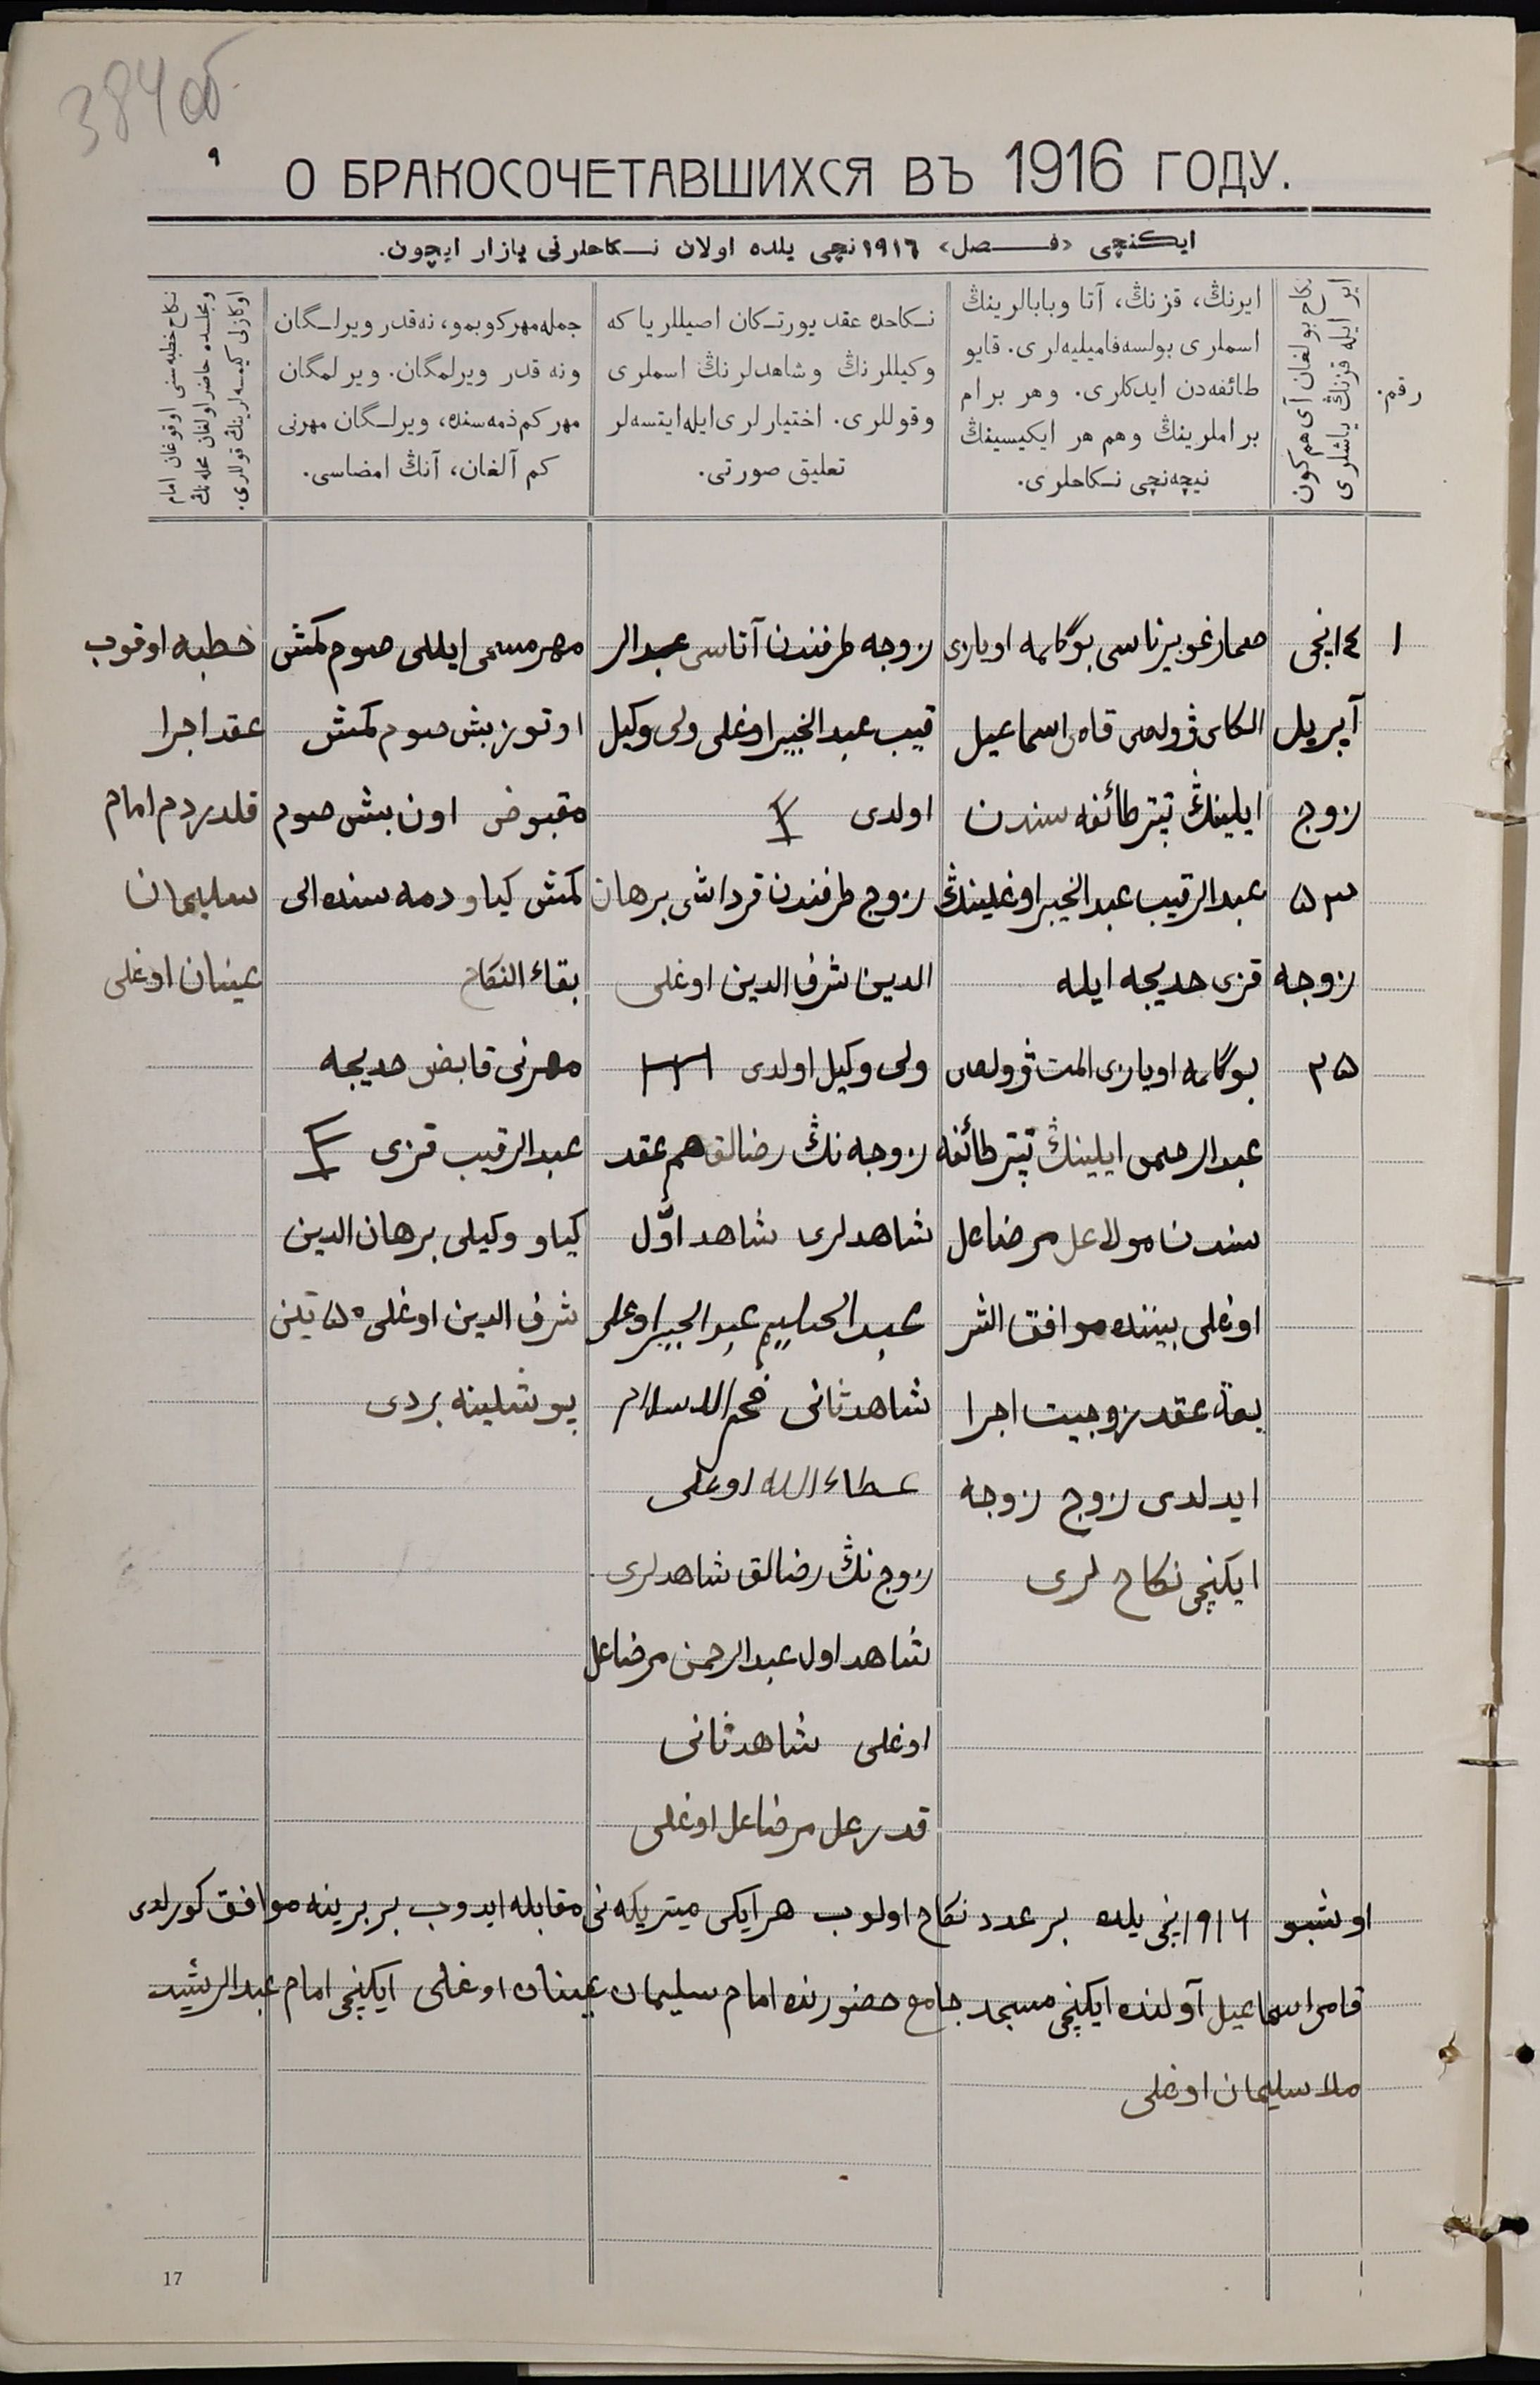 384 об.
٩
О БРАКОСОЧЕТАВШИХСЯ ВЪ 1916 ГОДУ.
ایكنچی «فصل» ١٩١٦نچی یلده اولان نكاحلرنی یازار ایچون.
رقم.
نكاح بولغان آی هم كون
ایر ایله قزنڭ یاشلری
ایرنڭ، قزنڭ، آتا وبابالرینڭ
اسملری بولسه فامیلیه‌لری. قایو
طائفه‌دن ایدكلری. وهر برام
براملرینڭ وهم هر ایكیسینڭ
نیچه‌نچی نكاحلری.
نكاحده عقد یورتكان اصیللر یا كه
وكیللرنڭ وشاهدلرنڭ اسملری
وقوللری. اختیارلری ایله ایتسه‌لر
تعلیق صورتی.
جمله مهر كوبمو، نه‌قدر ویرلگان
ونه قدر ویرلمگان. ویرلمگان
مهر كم ذمه‌سنده، ویرلگان مهرنی
كم آلغان، آنڭ امضاسی.
نكاح خطبه‌سنی اوقوغان امام
ومجلسده حاضر اولغان محله‌نڭ
اوكازلی كیمسه‌لرینڭ قوللری.
١
١٤نچی
آپریل
زوج
٥٣
زوجه
٣٥
صمار غوبیرناسی بوگلمه اویازی
ڤولص قاه اسماعیل
ایلینڭ تیتر طائفه سندن
عبدالرقیب عبدالخبیر اوغلینڭ
قزی خدیجه ایله
بوگلمه اویازی المت ڤولص
عبدالرحمن ایلینڭ تیپتر طائفه
سندن مولاعل مرضاعل
اوغلی بیننده موافق الشر
یعة عقد زوجیت اجرا
ایدلدی زوج زوجه
ایكنچی نكاح لری
زوجه طرفندن آتاسی عبدالر
قیب عبدالخبیر اوغلی ولی وكیل
اولدی
زوج طرفندن قرداشی برهان
الدین شرف الدین اوغلی
ولی وكیل اولدی
زوجه نڭ رضالق هم عقد
شاهدلری شاهد اوّل
عبدالحلیم عبدالخبیر اوغلی
شاهد ثانی فخر الاسلام
عطاءالله اوغلی
زوج نڭ رضالق شاهدلری
شاهد اول عبدالرحمن مرضاعل
اوغلی شاهد ثانی
قدرعل مرضاعل اوغلی
مهر مسمی ایللی صوم كمش
اوتوز بش صوم كمش
مقبوض اون بش صوم
كمش كیاو ذمه سنده الی
بقاء النكاح
مهرنی قابض خدیجه
عبدالرقیب قزی
كیاو وكیلی برهان الدین
شرف الدین اوغلی ٥٠ تین
یوشلینه بردی
خطبه اوقوب
عقد اجرا
قلدردم امام
سلیمان
عینان اوغلی
اوشبو ١٩١٦نچی یلده بر عدد نكاح اولوب هر ایكی میتریكه نی مقابله ایدوب بر برینه موافق كورلدی
قامی اسماعیل آولنده ایكنچی مسجد جامع حضورنده امام سلیمان عینان اوغلی ایكنچی امام عبدالرشید
ملا سلیمان اوغلی
17